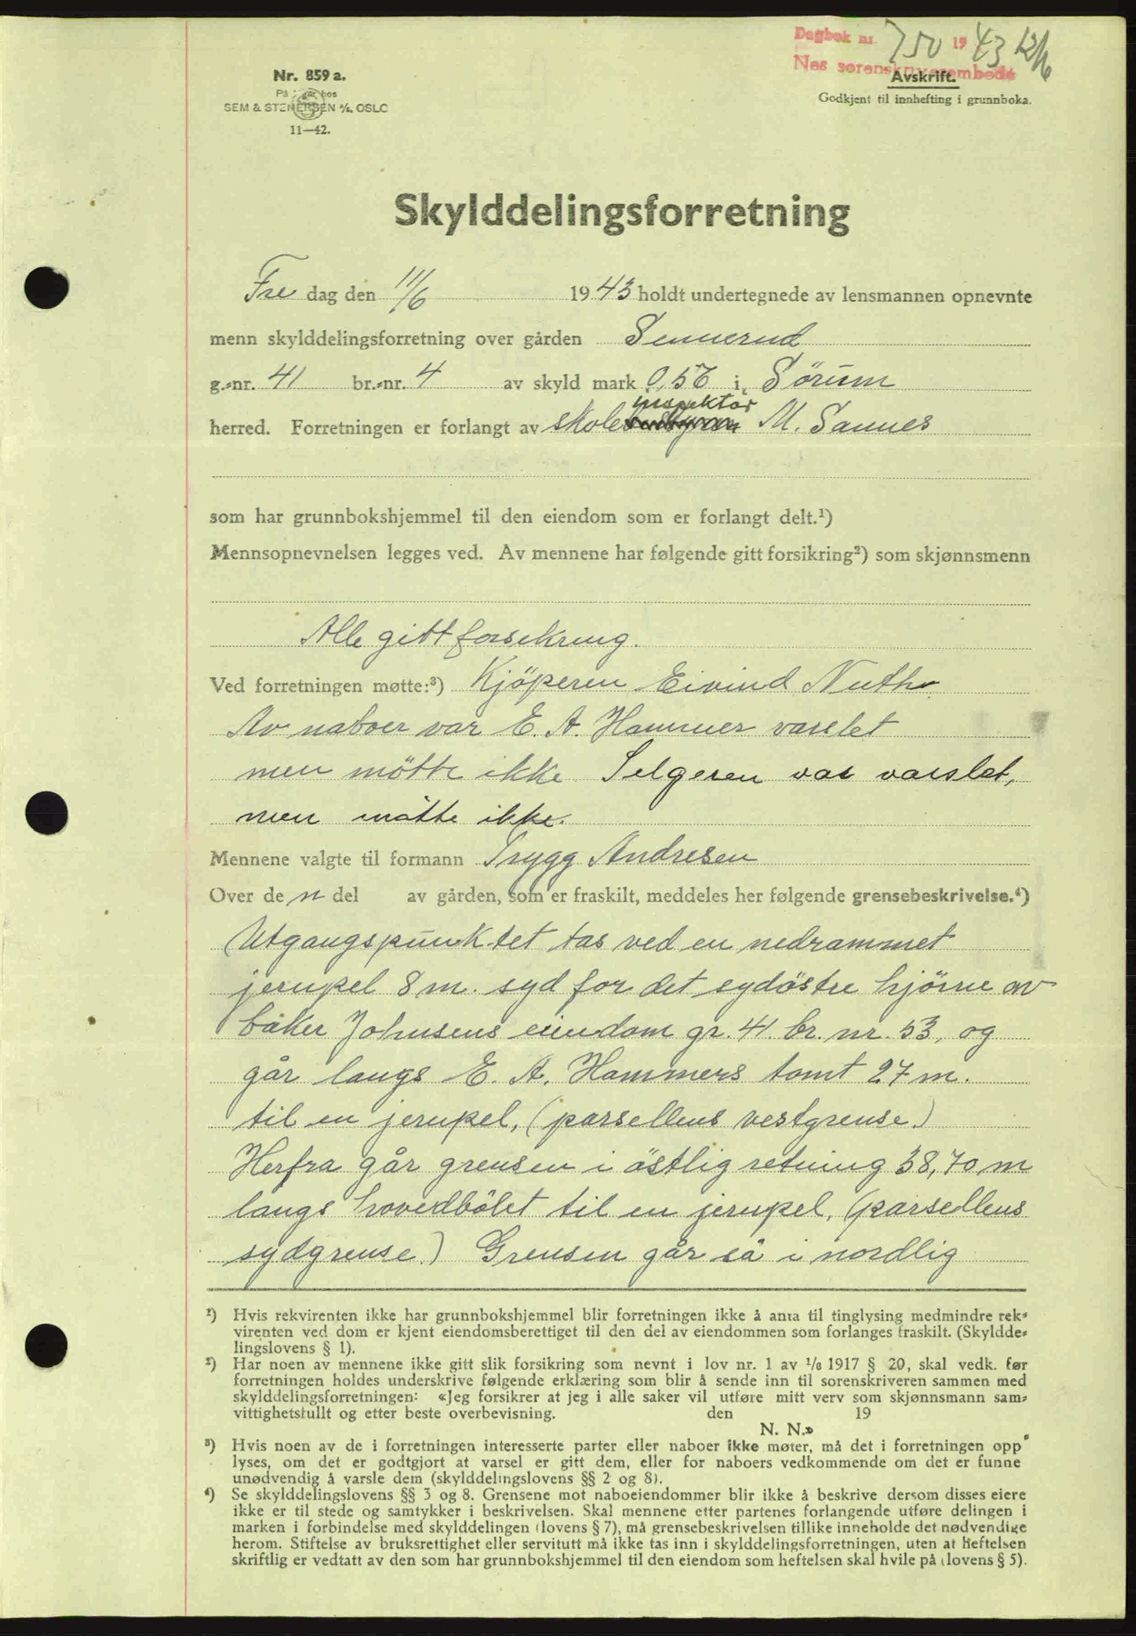 Dagbok nr. 750 1943 12/6
Nes sorenskriverembede
Nr. 859 a.
Avskrift.
På lager hos
SEM & STENERSEN A/S, OSLO
Godkjent til innhefting i grunnboka.
11—42.
Skylddelingsforretning
Fre dag den 11/6 1943 holdt undertegnede av lensmannen opnevnte
menn skylddelingsforretning over gården Sennerud
g.-nr. 41 br.-nr. 4 av skyld mark 0,56 i Sørum
inspektør
herred. Forretningen er forlangt av skole M. Sannes
som har grunnbokshjemmel til den eiendom som er forlangt delt.¹)
Mennsopnevnelsen legges ved. Av mennene har følgende gitt forsikring²) som skjønnsmenn
Alle gitt forsikring.
Ved forretningen møtte:³) Kjöperen Eivind Nuth.
Av naboer var E. A. Hammer varslet
men mötte ikke Selgeren var varslet,
men møtte ikke.
Mennene valgte til formann Trygg Andresen
Over de n del av gården, som er fraskilt, meddeles her følgende grensebeskrivelse.⁴)
Utgangspunktet tas ved en nedrammet
jernpel 8 m. syd for det sydöstre hjörne av
baker Johnsens eiendom gr. 41. br. nr. 53, og
går langs E. A. Hammers tomt 27 m.
til en jernpel, (parsellens vestgrense.)
Herfra går grensen i östlig retning 38,70 m
langs hovedbölet til en jernpel, (parsellens
sydgrense.) Grensen går så i nordlig
¹) Hvis rekvirenten ikke har grunnbokshjemmel blir forretningen ikke å anta til tinglysing medmindre rek-
virenten ved dom er kjent eiendomsberettiget til den del av eiendommen som forlanges fraskilt. (Skyldde-
lingslovens § 1).
²) Har noen av mennene ikke gitt slik forsikring som nevnt i lov nr. 1 av 1/6 1917 § 20, skal vedk. før
forretningen holdes underskrive følgende erklæring som blir å sende inn til sorenskriveren sammen med
skylddelingsforretningen: «Jeg forsikrer at jeg i alle saker vil utføre mitt verv som skjønnsmann sam-
vittighetsfullt og etter beste overbevisning. den 19
N. N.»
³) Hvis noen av de i forretningen interesserte parter eller naboer ikke møter, må det i forretningen opp
lyses, om det er godtgjort at varsel er gitt dem, eller for naboers vedkommende om det er funne
unødvendig å varsle dem (skylddelingslovens §§ 2 og 8).
⁴) Se skylddelingslovens §§ 3 og 8. Grensene mot naboeiendommer blir ikke å beskrive dersom disses eiere
ikke er til stede og samtykker i beskrivelsen. Skal mennene etter partenes forlangende utføre delingen i
marken i forbindelse med skylddelingen (lovens § 7), må grensebeskrivelsen tillike inneholde det nødvendige
herom. Stiftelse av bruksrettighet eller servitutt må ikke tas inn i skylddelingsforretningen, uten at heftelsen
skriftlig er vedtatt av den som har grunnbokshjemmel til den eiendom som heftelsen skal hvile på (lovens § 5).